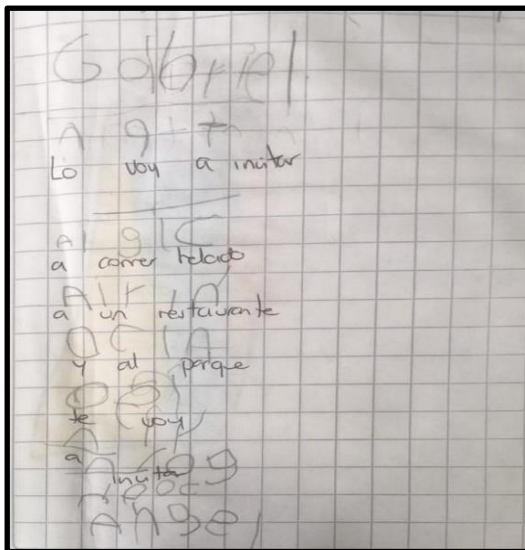 Gabriel
A g t
Lo voy a invitar
A g l C
a comer helado
A l r l A
a un restaurante
y al parque
te voy
a
invitar
Angel